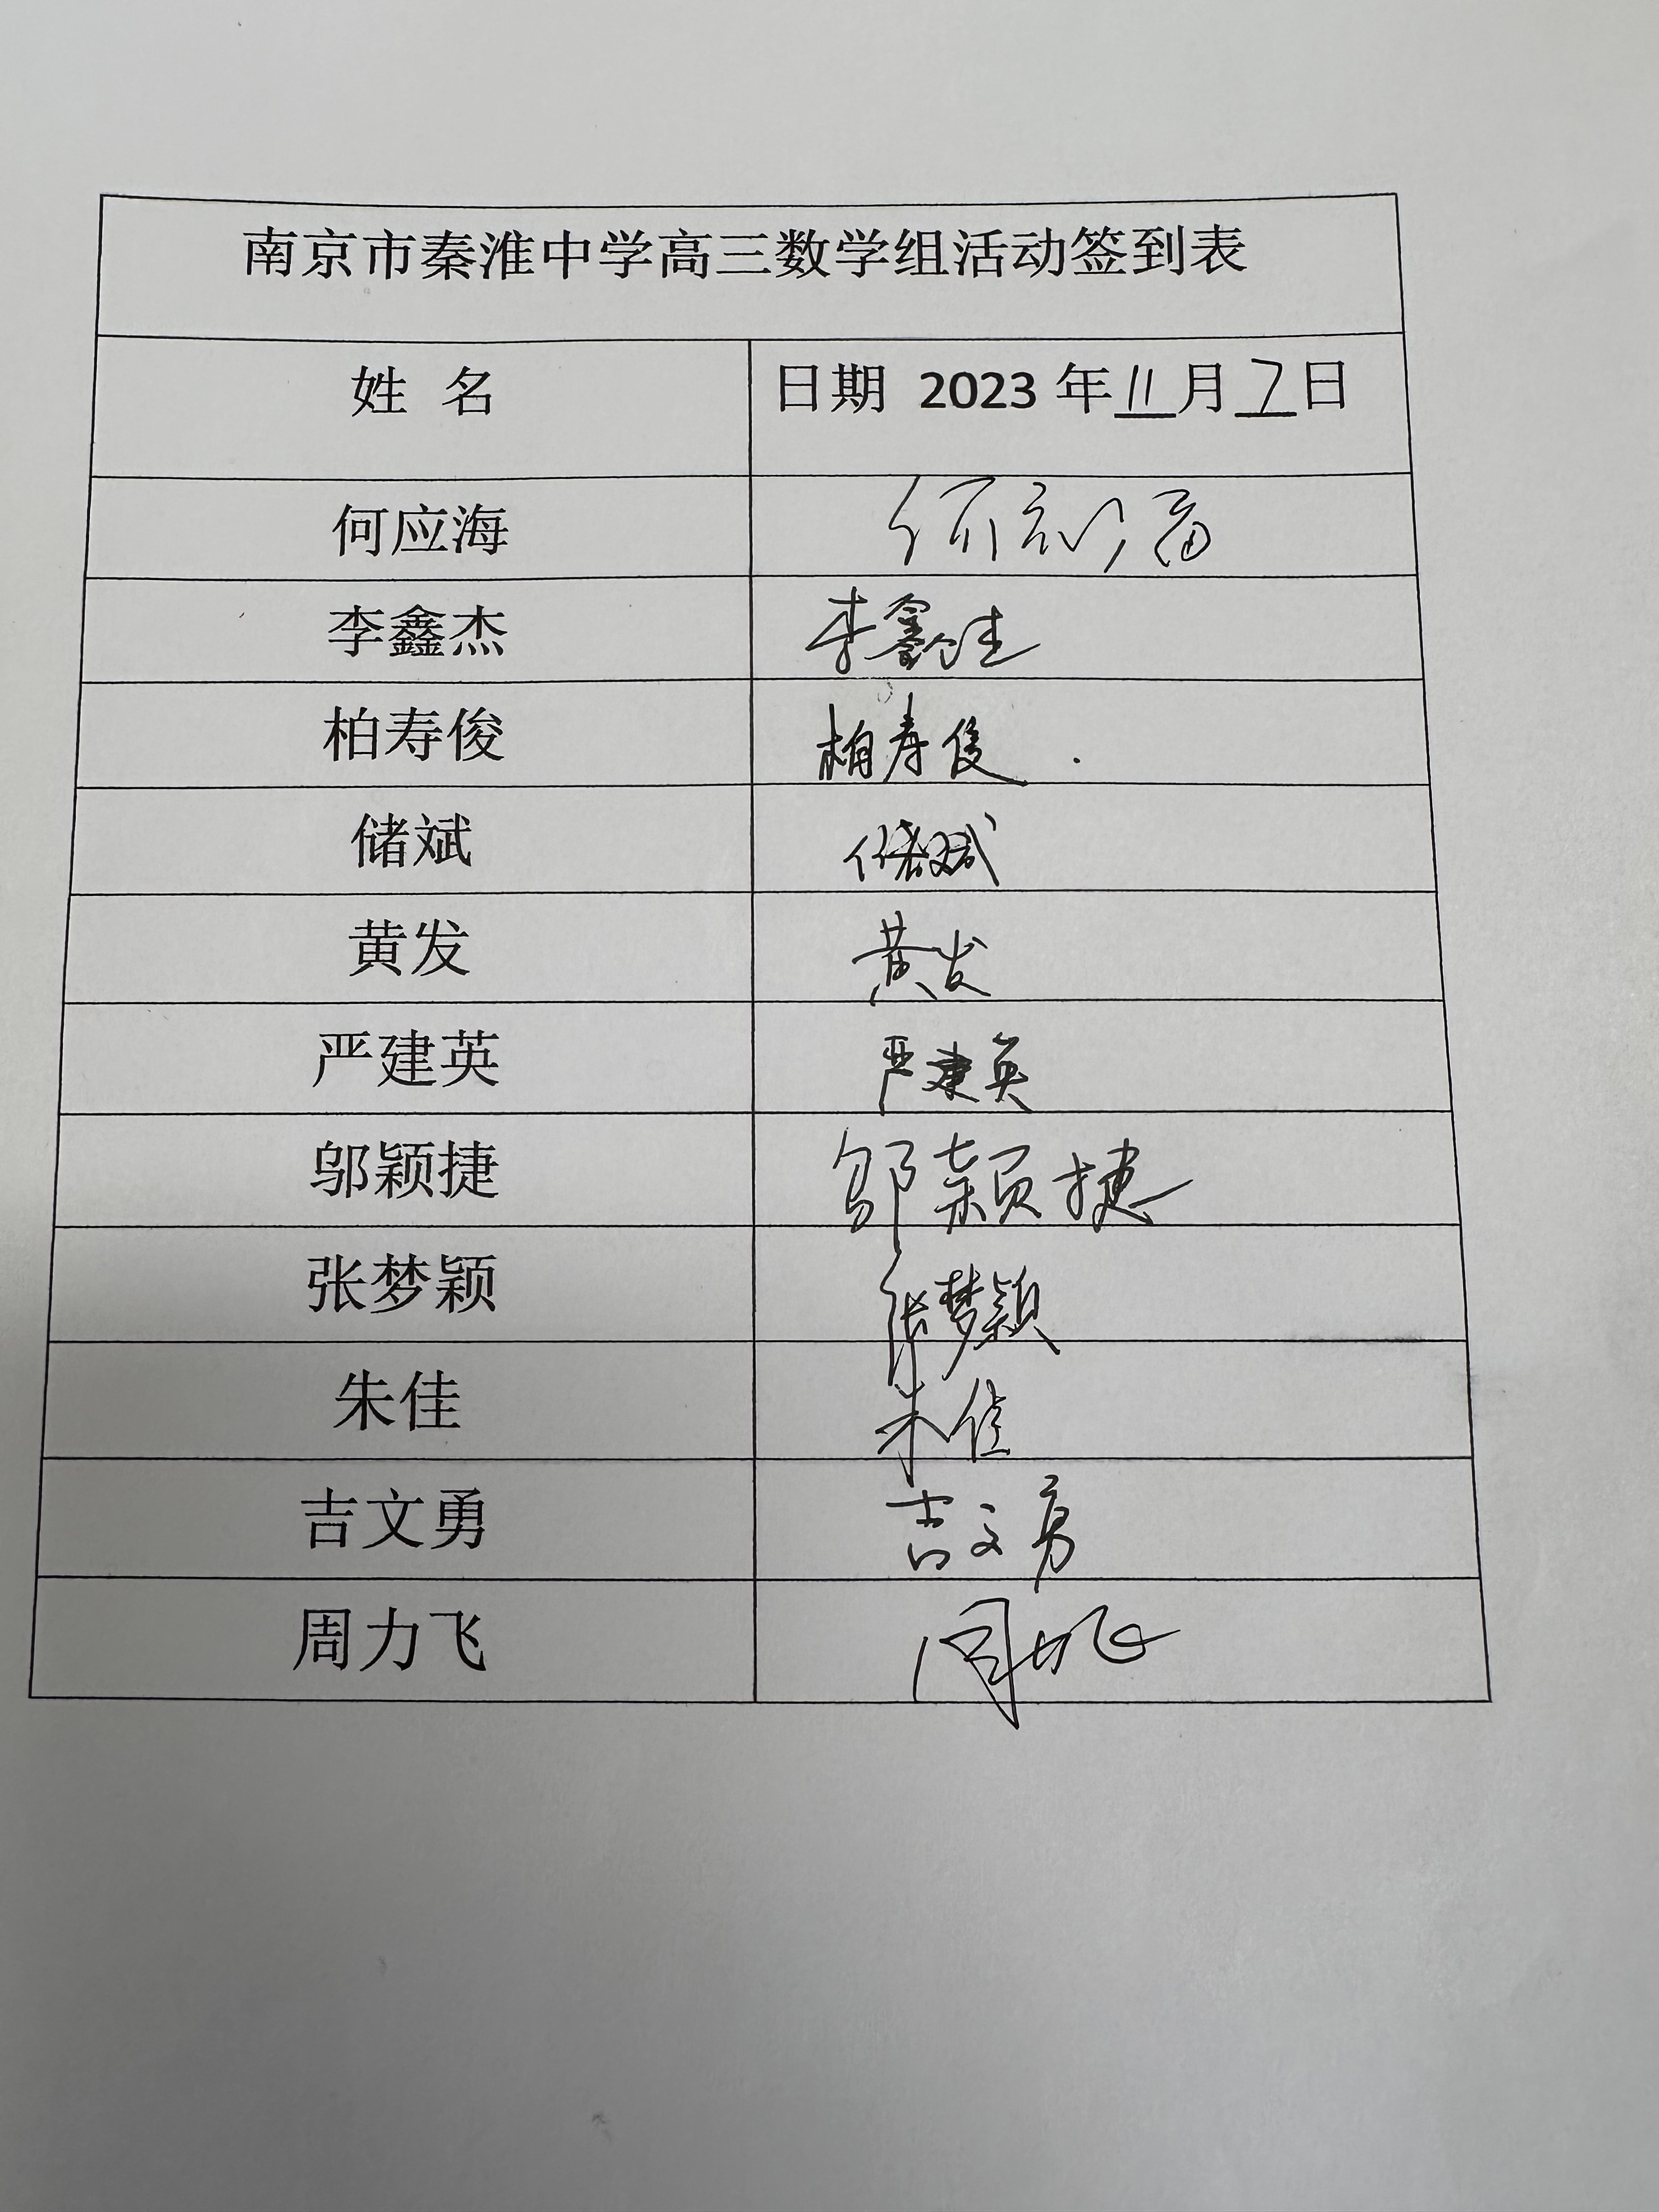 南京市秦淮中学高三数学组活动签到表
姓 名 日期 2023 年 11 月 7 日
何应海 何应海
李鑫杰 李鑫杰
柏寿俊 柏寿俊
储斌 储斌
黄发 黄发
严建英 严建英
邬颖捷 邬颖捷
张梦颖 张梦颖
朱佳 朱佳
吉文勇 吉文勇
周力飞 周力飞